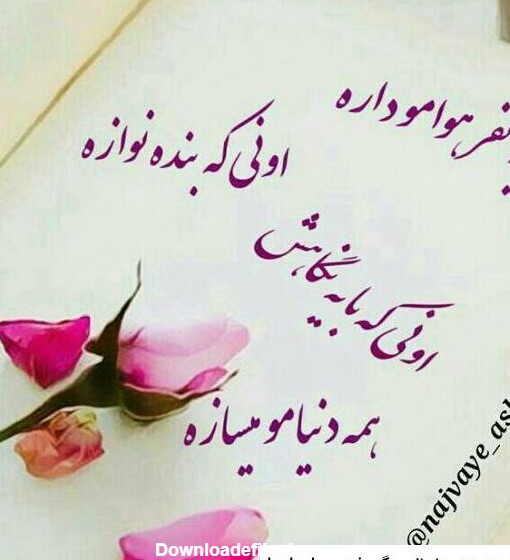 نفر هوامو داره
اونی که بنده نوازه
اونی که با یه نگاهش
همه دنیامو میسازه
@najvaye_as
Downloadef